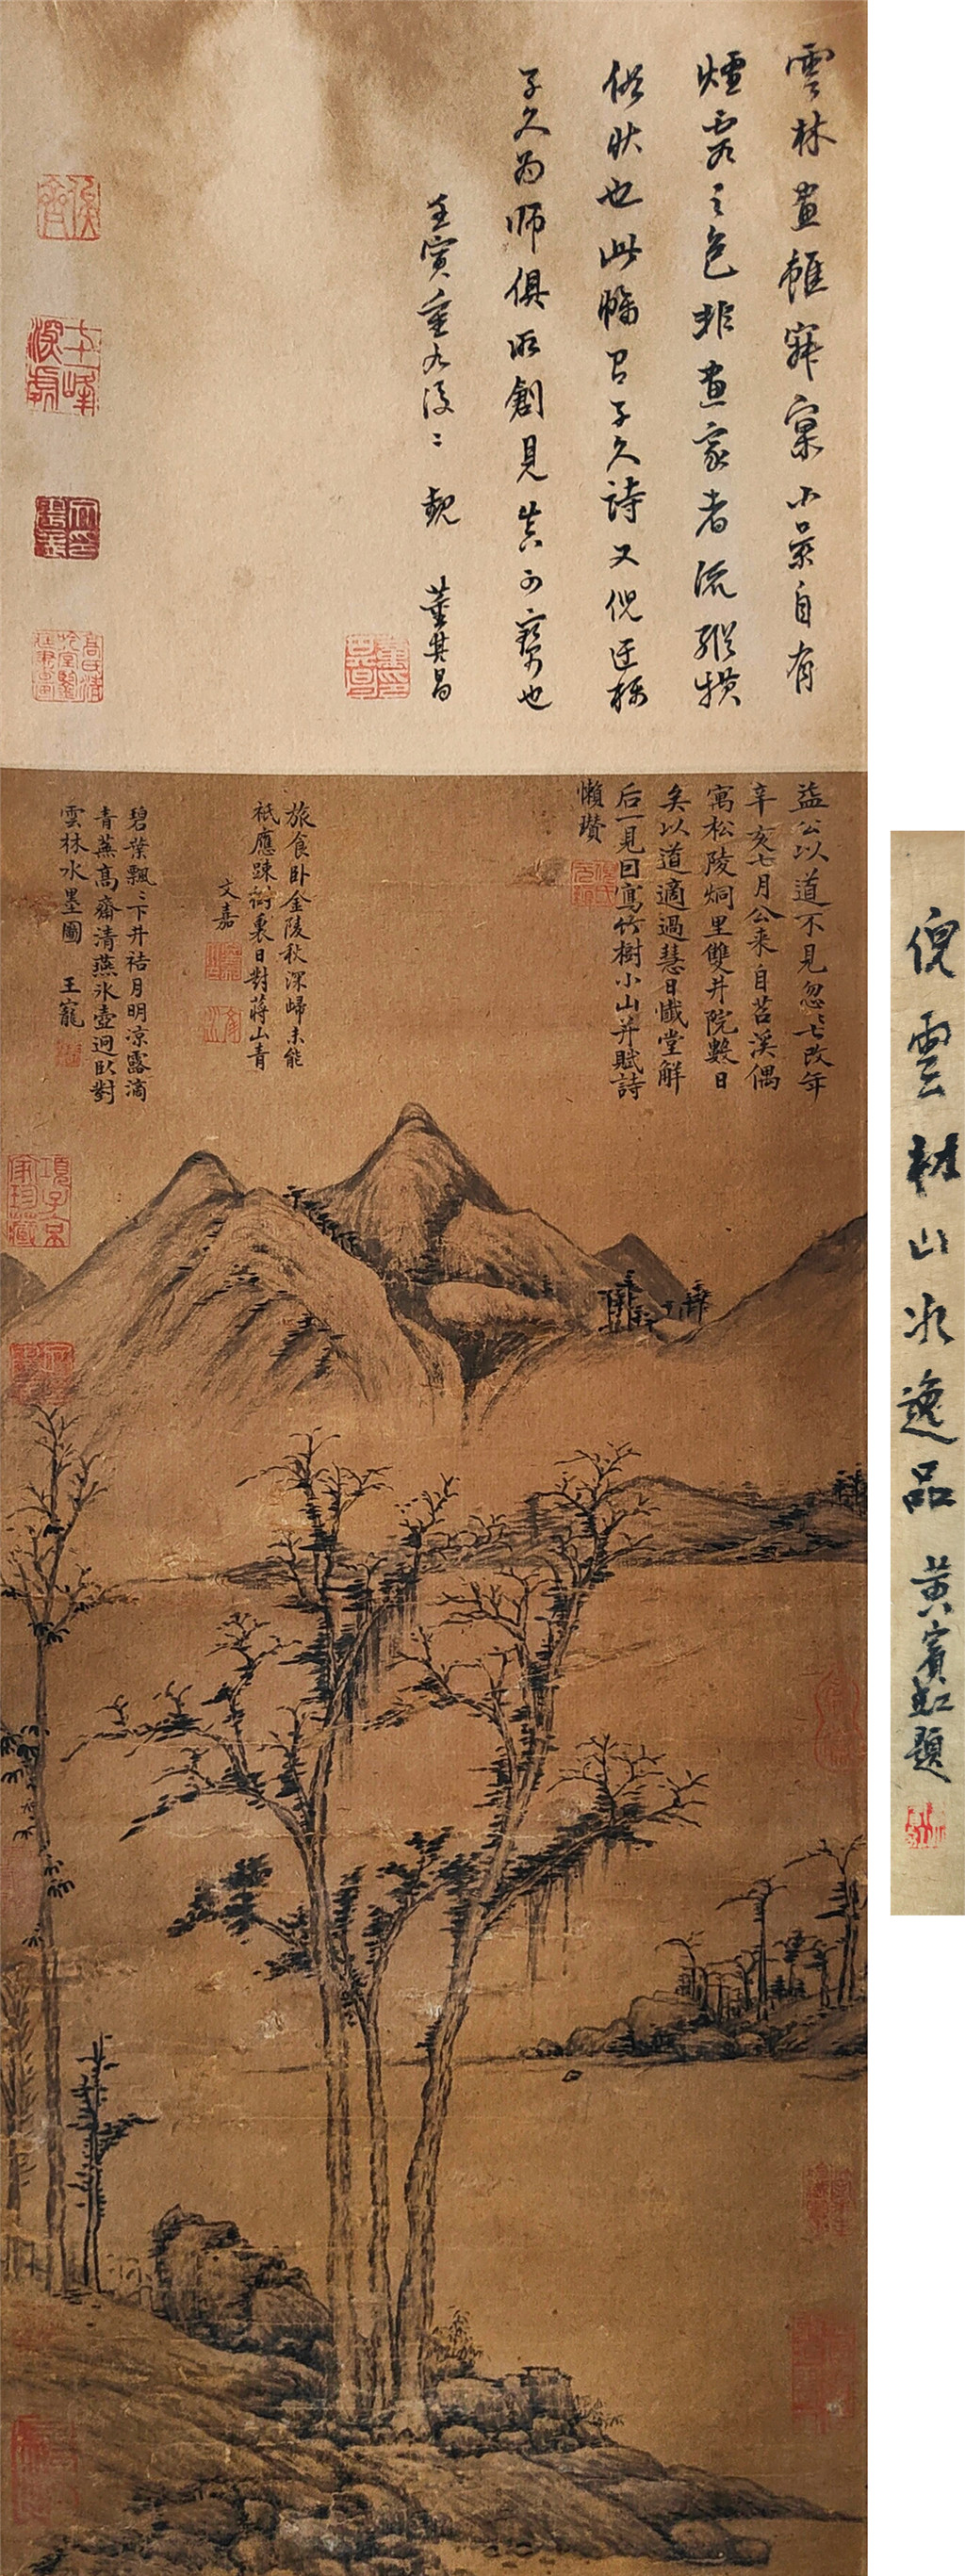 雲林畫雖寂寞小景自有
煙霞之色非畫家者流縱横
俗狀也此幅有子久詩又倪迂称
子久為師俱所創見真可寶也
壬寅重九後二 觀 董其昌
益公以道不見忽忽七改年
辛亥七月公来自苕溪偶
寓松陵炯里雙井院數日
矣以道適過慧日懺堂解
后一見因寫竹樹小山并賦詩
懶瓚
旅食卧金陵秋深歸未能
祇應踈裏日對蔣山青
文嘉
碧葉飄飄下井祜月明凉露滴
青蕪高齋清燕氷壺迥卧對
雲林水墨圖 王寵
倪雲林山水逸品 黄賓虹題